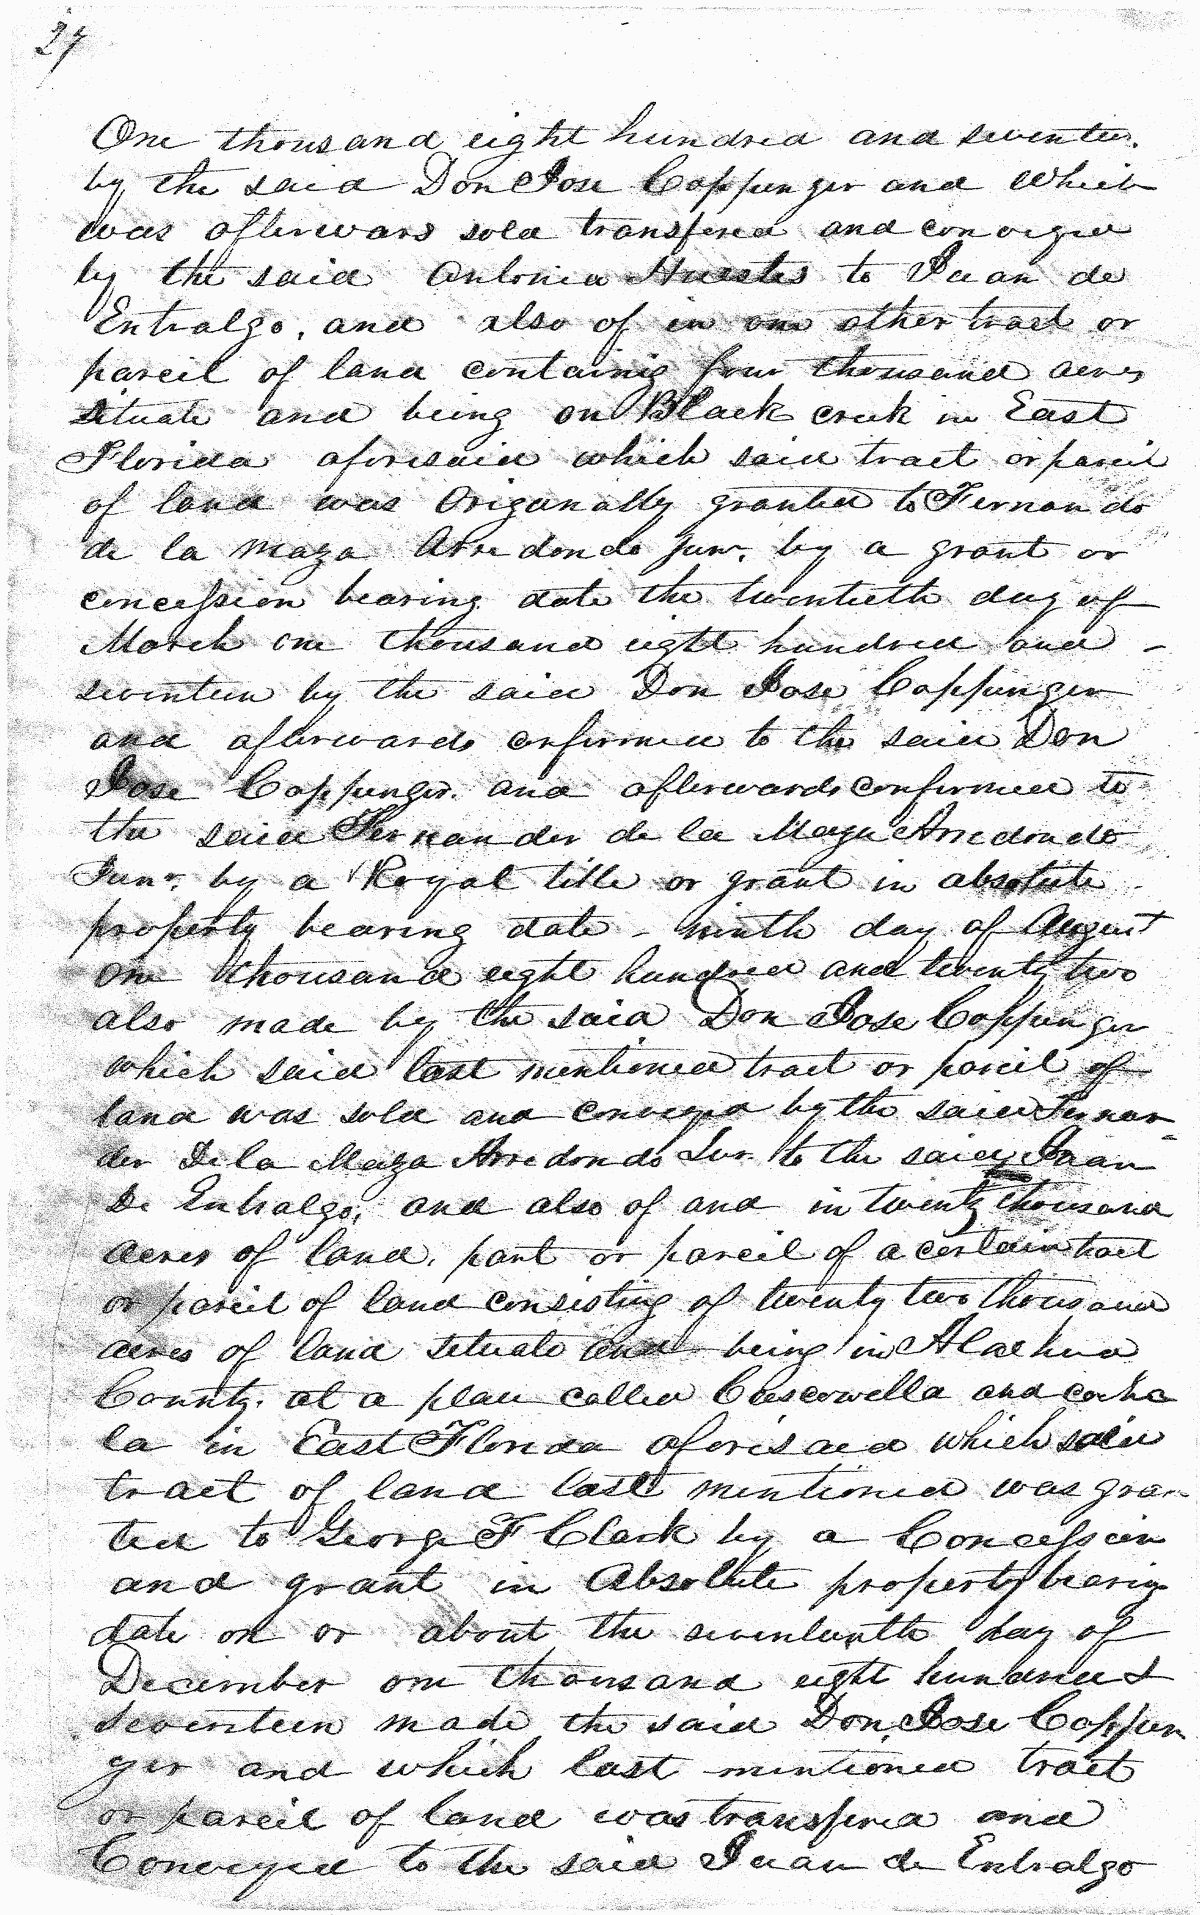 27
One thousand eight hundred and seventeen.
by the said Don Jose Coppenger and which
was afterwars sold transfered and conveyed
by the said Antonia Huertes to Juan de
Entralgo, and also of in one other tract or
parcil of land containig four thousand acres
situate and being on Black creek in East
Florida aforesaid which said tract or parcil
of land was Origanally granted to Fernando
de la Maza Arredondo Junr. by a grant or
concession bearing date the twentieth day of
March one thousand eight hundred and -
seventeen by the said Don Jose Coppenger
and afterwards confirmed to the said Don
Jose Coppenger. and afterwards confirmed to
the said Fernander de la Maza Arredondo
Junr. by a Royal title or grant in absolute
property bearing date - ninth day of August
one thousand eight hundred and twenty two
also made by the said Don Jose Coppenger
which said last mentioned tract or parcil of
land was sold and conveyed by the said Fernan-
der De la Maza Arredondo Jur. to the said Juan
De Entralgo, and also of and in twenty thousand
acres of land. part or parcil of a certain tract
or parcil of land consisting of twenty two thousand
acres of land situate and being in Alachua
County. at a place called Cuscowella and
la in East Florida aforesaid which said
tract of land last mentioned was gran-
ted to George F Clark by a Concession
and grant in Absolute property bearing
date on or about the seventeenth day of
December one thousand eight hundred &
seventeen made the said Don Jose Coppen
ger and which last mentioned tract
or parcil of land was transfered and
Conveyed to the said Juan de Entralgo